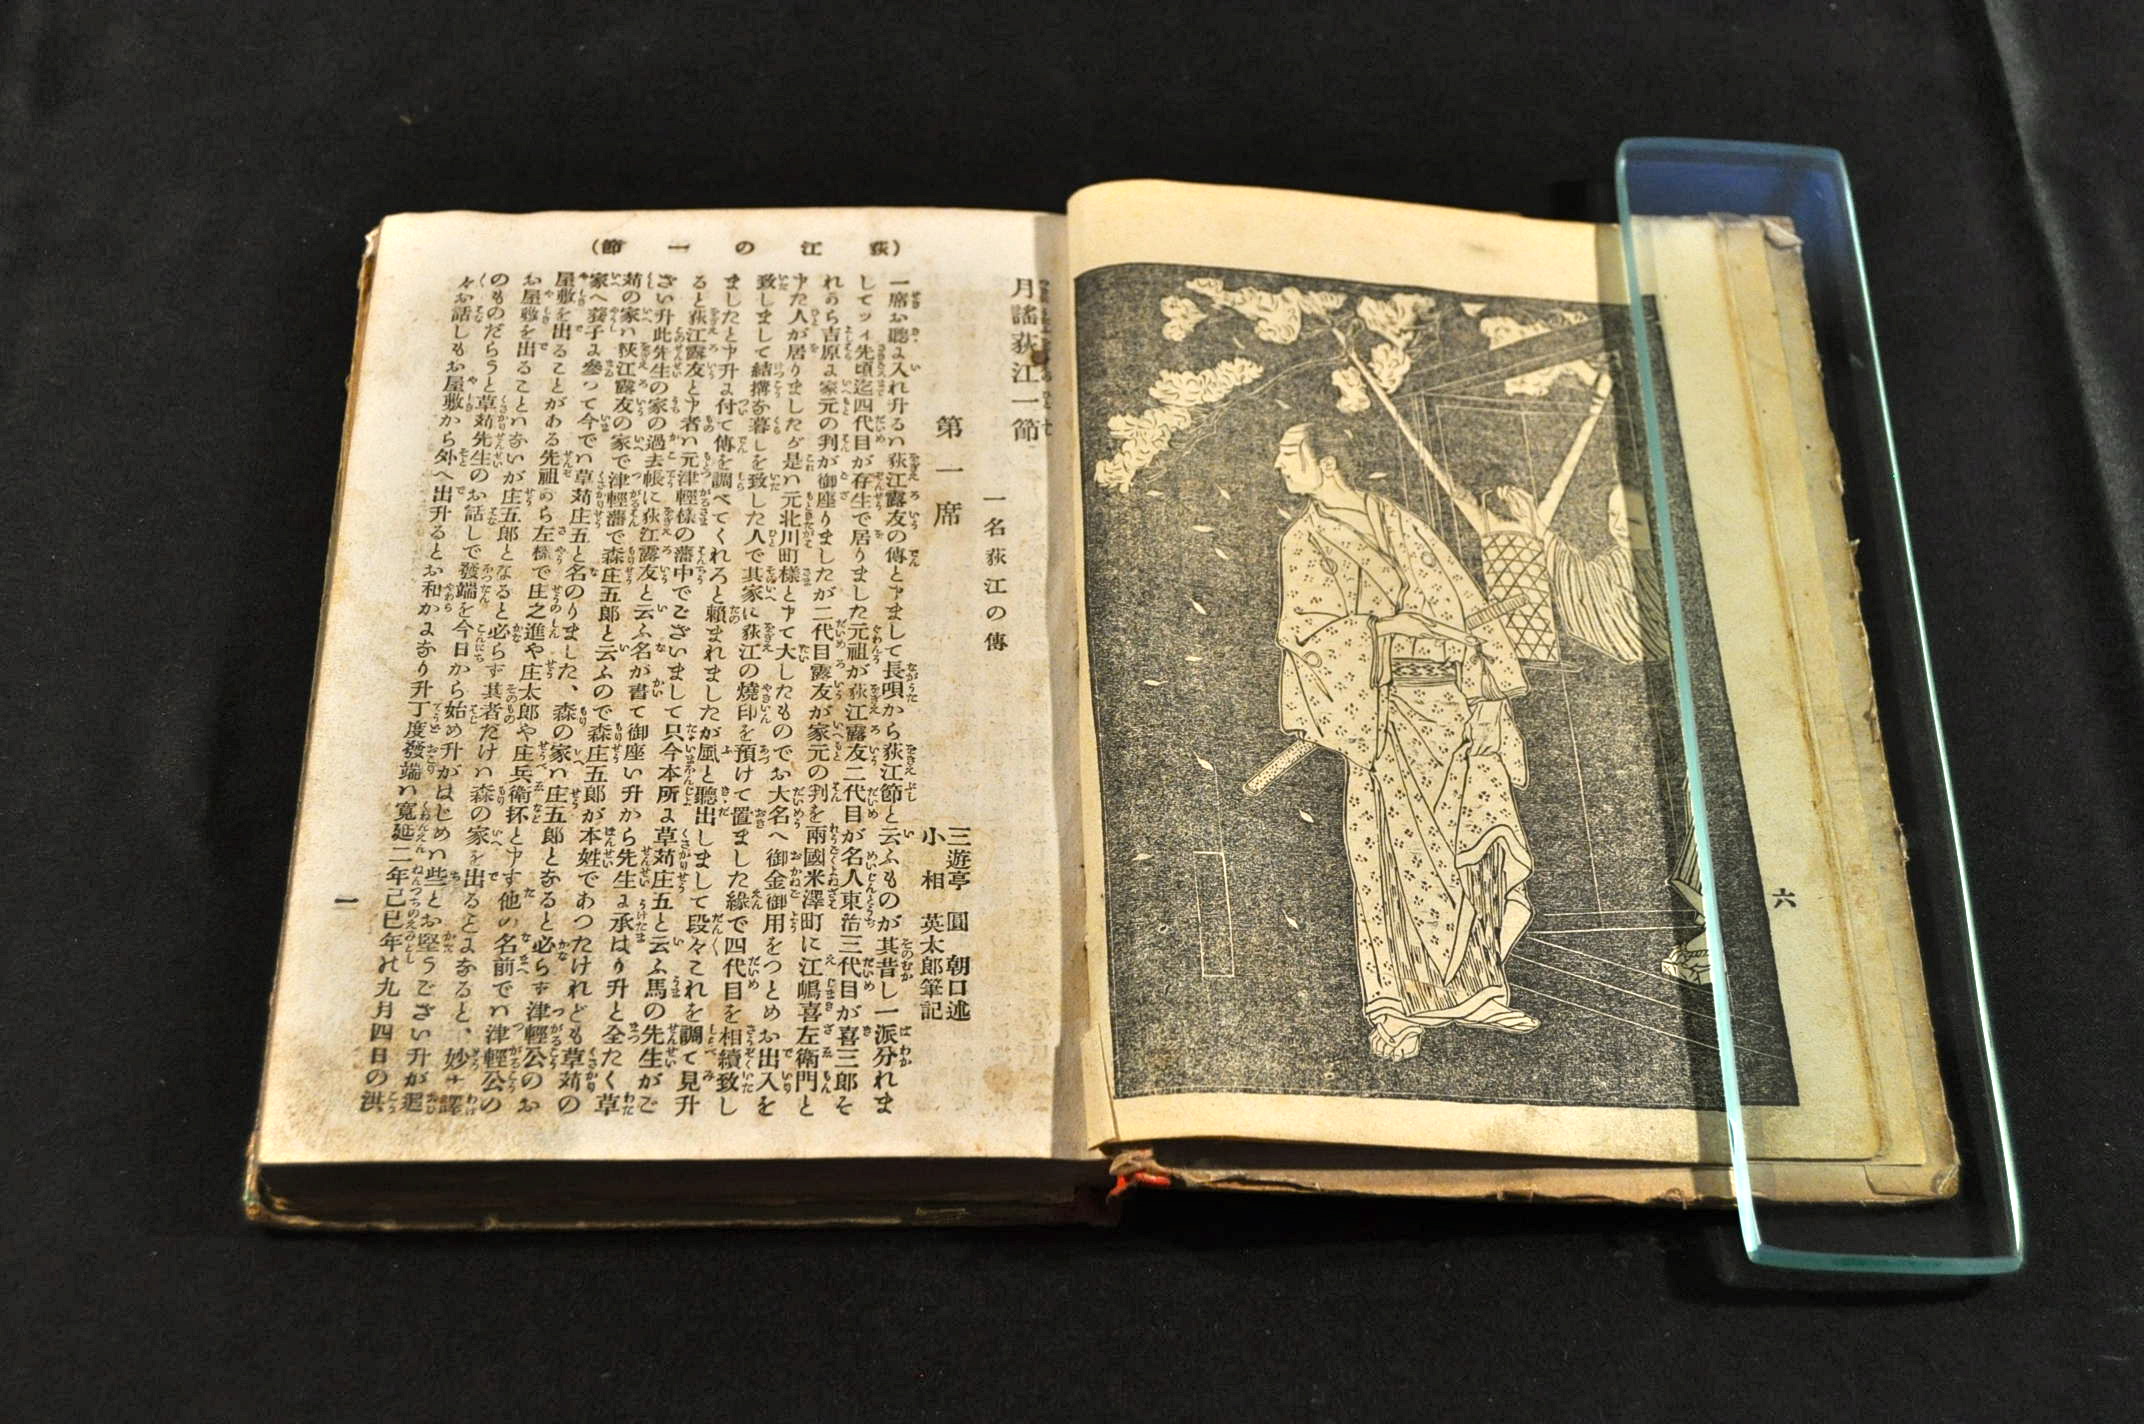 六
月謠荻江一節
一名荻江の傳
三遊亭 圓朝口述
小相 英太郎筆記
第一席
一席お聽に入れ升るハ荻江露友の傳と申まして長唄から荻江節と云ふものが其昔し一派分れま
してツイ先頃迄四代目が存生で居りました元祖が荻江露友二代目が名人東治三代目が喜三郎そ
れから吉原に家元の判が御座りましたが二代目露友が家元の判を兩國米澤町に江嶋喜左衛門と
申た人が居りましたが是ハ元北川町様と申て大したものでお大名へ御金御用をつとめお出入を
致しまして結搆な暮しを致した人で其家に荻江の燒印を預けて置ました縁で四代目を相續致し
ましたと申升に付て傳を調べてくれろと賴まれましたが風と聽出しまして段々これを調て見升
ると荻江露友と申者ハ元津輕様の藩中でございまして只今本所に草苅庄五と云ふ馬の先生がご
ざい升此先生の家の過去帳に荻江露友と云ふ名が書て御座い升から先生に承はり升と全たく草
苅の家ハ荻江露友の家で津輕藩で森庄五郎と云ふので森庄五郎が本姓であつたけれども草苅の
家へ養子に參って今でハ草苅庄五と名のりました、森の家ハ庄五郎となると必らず津輕公のお
屋敷を出ることがある先祖から左様で庄之進や庄太郎や庄兵衛抔と申す他の名前でハ津輕公の
お屋敷を出ることハないが庄五郎となると必らず其者だけハ森の家を出ることになると、妙な譯
のものだらうと草苅先生のお話しで發端を今日から始め升がはじめハ些とお堅うござい升が追
々お話しもお屋敷から外へ出升るとお和かになり升丁度發端ハ寬延二年己巳年の九月四日の洪
(荻江の一節)
一